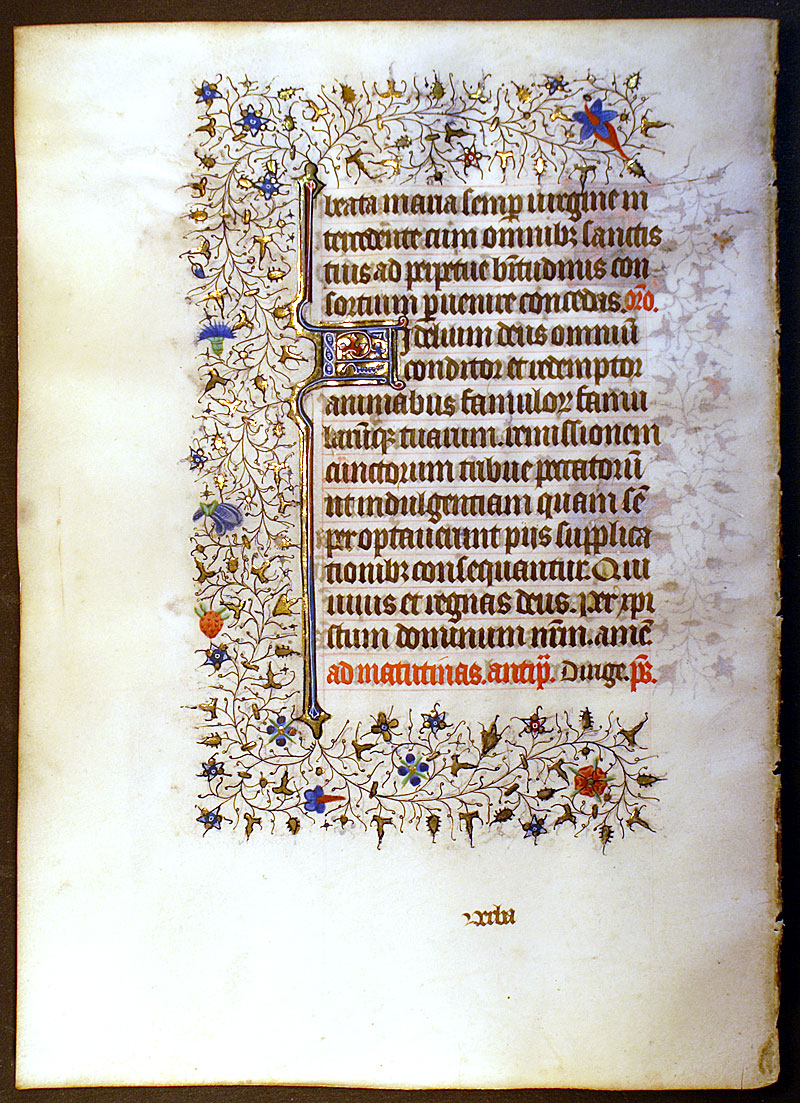 beata maria semp uirgine in
tercedente cum omnibꝫ sanctis
tuis ad perpetue bt̄itudinis con
sortium ꝑuenire concedas. or̄o.
Fidelium deus omniū
conditor et redemptor
animabus famulorꝝ famu
larūqꝫ tuarum. remissionem
cunctorum tribue peccatorū
ut indulgentiam quam sē
per optauerunt piis supplica
tionibꝫ consequantur. Qui
uiuis et regnas deus. per xp̄i
stum dominum nr̄m. amē
ad matutinas. antip̄. Dirige. ps̄.
Verba